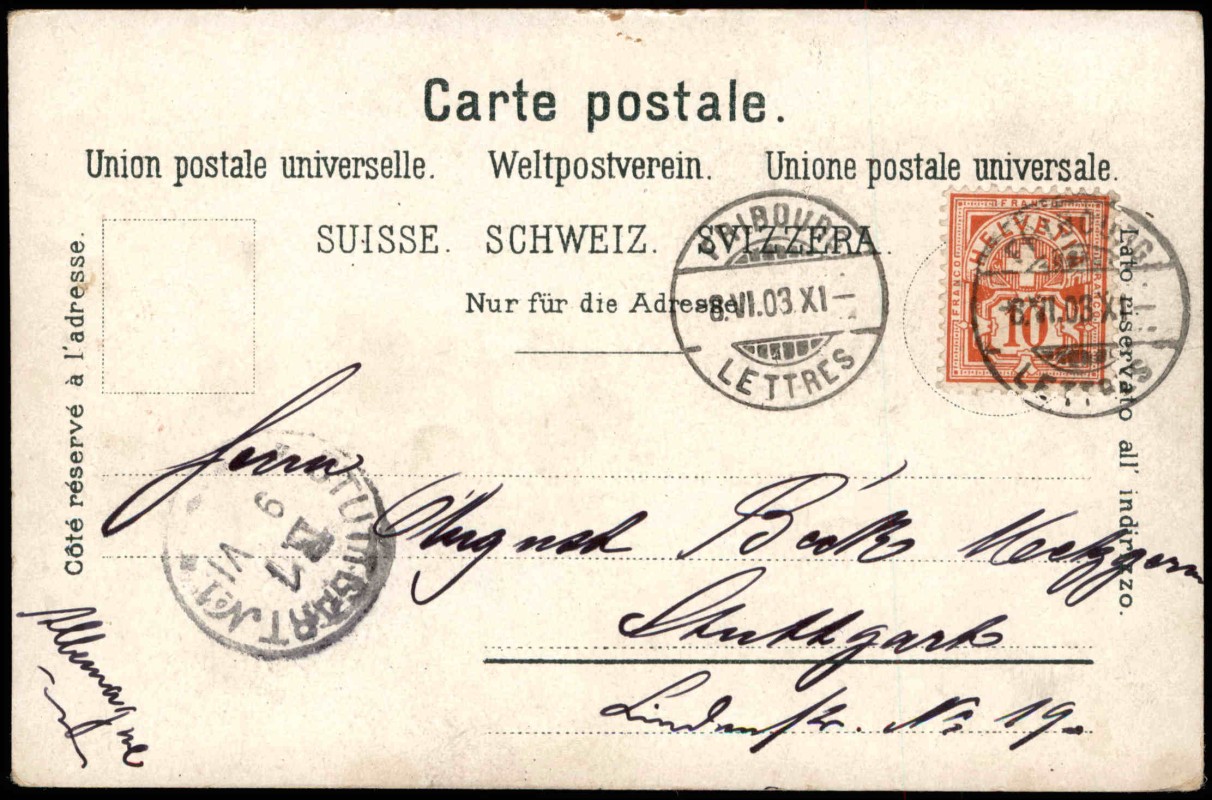 Carte postale.
Union postale universelle. Weltpostverein. Unione postale universale.
SUISSE. SCHWEIZ. SVIZZERA.
Nur für die Adresse.
Côté réservé à l'adresse.
Lato riservato all' indirizzo.
FRIBOURG
8.VI.03.XI—
LETTRES
FRANCO
HELVETIA
FRANCO
FRANCO
10
FRIBOURG
8.VI.03.XI—
LETTRES
Herrn
Beck Metzgern
Stuttgart
Lindenstr. No 19.
Allemagne
STUTTGART No 1
9
VI